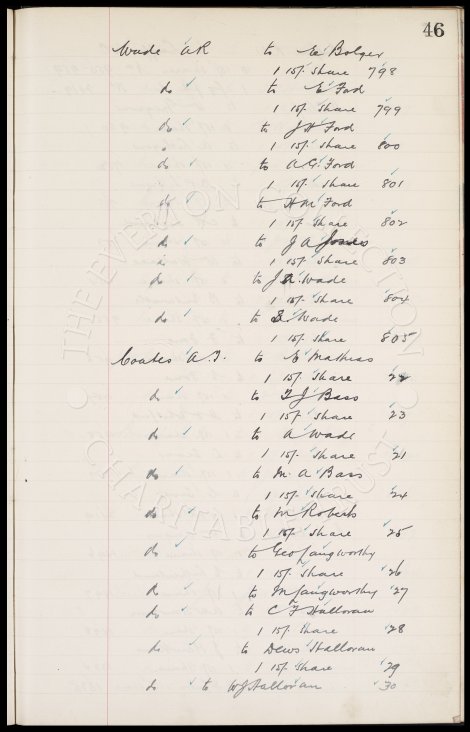 46
Wade AR to E Bolger
1 15/- Share 798
do to E Ford
1 15/- Share 799
do to J H Ford
1 15/- Share 800
do to A G Ford
1 15/- Share 801
do to H M Ford
1 15/- Share 802
do to J A Jones
1 15/- Share 803
do to J A Wade
1 15/- Share 804
do to E Wade
1 15/- Share 805
Coates A J. to E Mathias
1 15/- Share 22
do to T J Bass
1 15/- Share 23
do to A Wade
1 15/- Share 21
do to M. A Bass
1 15/- Share 24
do to M Roberts
1 15/- Share 25
do to Geo Langworthy
1 15/- Share 26
do to M Langworthy 27
do to C F Halloran
1 15/- Share 28
do to Dews Halloran
1 15/- Share 29
do to W J Halloran 30
THE EVERMON COLLECTION
CHARITABLE TRUST